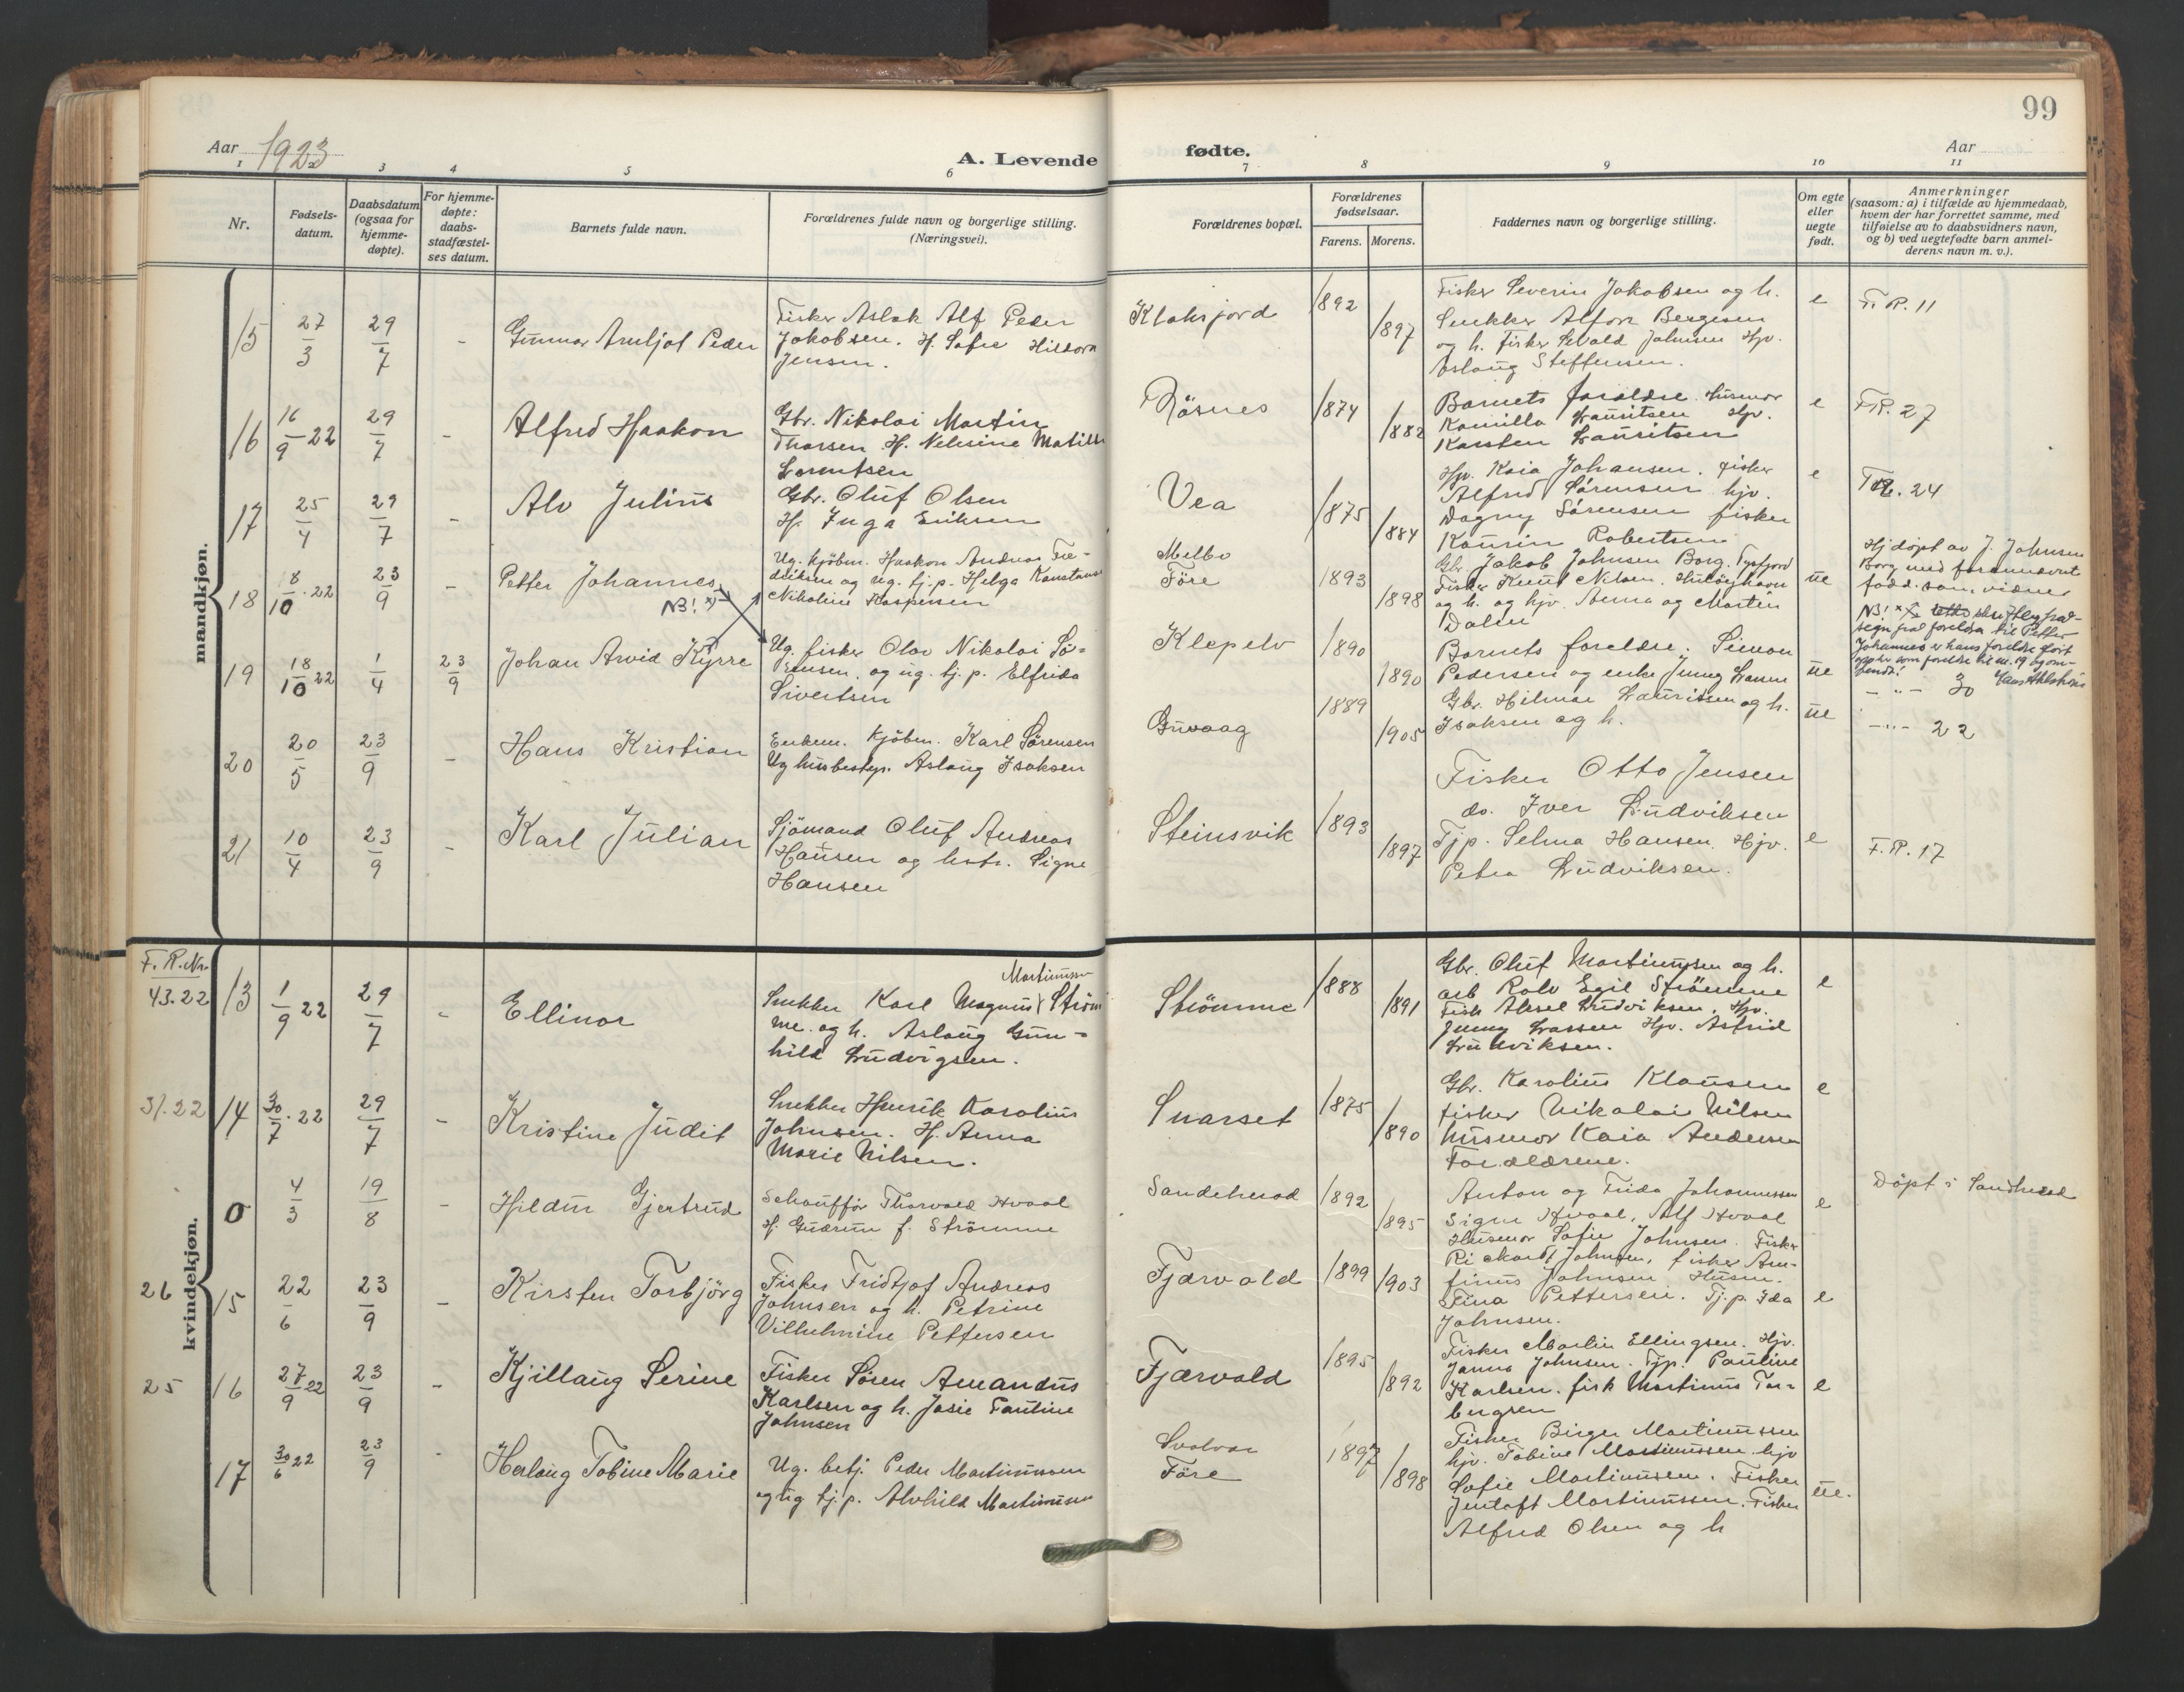 99
Aar 1923
A. Levende fødte.
Aar
1 2 3 4 5 6 7 8 9 10 11
Nr.
Fødsels-
datum.
Daabsdatum
(ogsaa for
hjemme-
døpte).
For hjemme-
døpte:
daabs-
stadfæstel-
ses datum.
Barnets fulde navn.
Forældrenes fulde navn og borgerlige stilling.
(Næringsvei).
Forældrenes bopæl.
Forældrenes
fødselsaar.
Farens. Morens.
Faddernes navn og borgerlige stilling.
Om egte
eller
uegte
født.
Anmerkninger
(saasom: a) i tilfælde av hjemmedaab,
hvem der har forrettet samme, med
tilføielse av to daabsvidners navn,
og b) ved uegtefødte barn anmel-
derens navn m. v.).
mandkjøn.
15 27/3 29/7 - Gunnar Arnljot Peder
Fisker Aslak Alf Peder
Jakobsen. H. Sofie Hildora
Jensen.
Klaksjord 1892 1897
Fisker Severin Jakobsen og h.
Snekker Alfon Bergesen
og h. Fisker Sevald Johnsen Hjv.
Aslaug Steffensen.
e F. R. 11
16 16/9 22 29/7 - Alfred Haakon
Gbr. Nikolai Martin
Thorsen H. Nelesine Matilde
Lorentsen
Røsnes 1874 1882
Barnets forældre. Husmor
Kamilla Lauritsen Hjv.
Karsten Lauritsen
e F.R. 27
17 25/4 29/7 - Alv Julius
Gbr. Oluf Olsen
H. Inga Eriksen
Vea 1875 1884
Hjv. Kaia Johansen. Fisker
Alfred Sørensen hjv.
Dagny Sørensen fisker
Kaurin Robertsen
e F.R. 24
18 18/10.22 23/9 - Petter Johannes
NB! x)
Ug. kjøbm. Haakon Andreas Fre-
driksen og ug. tj. p. Helga Konstanse
Nikoline Kaspersen
Melbo
Føre 1893 1898
Gbr. Jakob Johnsen Borg. Tysfjord
Fisker Knut Nilsen. Huløyhavn
og h. og hjv. Anna og Martin
Dalen
ue
Hj døpt av J. Johnsen
Borg med forannævnt
fadd. som vidner
NB! x)
segn fra foreldra til Petter
Johannes er hans foreldre ført
opp her som foreldre til nr. 19 og om-
vendt!
19 18/10 22 1/4 23/9 Johan Arvid Kyrre
Ug. fisker Olav Nikolai Sø-
rensen, og ug. tj. p. Elfrida
Sivertsen
Klepelv 1890 1890
Barnets foreldre. Simon
Pedersen og enke Jenny
ue - " - 30
20 20/5 23/9 - Hans Kristian
Enkem. kjøbm. Karl Sørensen
Ug husbestyr. Aslaug Isaksen
Guvaag 1889 1905
Gbr. Hilmar Lauritsen og h.
Isaksen og h.
ue - " - 22
21 10/4 23/9 - Karl Julian
Sjømand Oluf Andreas
Hansen og hstr. Signe
Hansen
Steinsvik 1893 1897
Fisker Otto Jensen
do. Iver Ludviksen
Tjp. Selma Hansen. Hjv.
Petra Ludviksen.
e F. R. 17
kvindekjøn.
F. R. Nr.
43.22 13 1/9 22 29/7 - Ellinor
Martinussen
Snekker Karl Magnus Strøm
me. og h. Aslaug Gun-
hild Ludvigsen.
Strømme 1888 1891
Gbr. Oluf Martinussen og h.
arb Rolv Egil Strømme
Fisk Aksel Ludviksen, Hjv.
Jenny Larsen Hjv. Astrid
Ludviksen.
e
31.22 14 30/7.22 29/7 - Kristine Judit
Snekker Henrik Karolius
Johnsen. H. Anna
Marie Nilsen.
Snarset 1875 1890
Gbr. Karolius Klausen
fisker Nikolai Nilsen
husmor Kaia Andersen
Forældrene.
e
0 4/3 19/8 - Hildur Gjertrud
Schauffør Thorvald Hvaal
H. Gudrun f. Strømme
Sandeherad 1892 1895
Anton og Frida Johannessen
Signe Hvaal, Alf Hvaal
e Døpt i Sandherad
26 15 22/6 23/9 - Kirsten Torbjørg
Fisker Fridtjof Andreas
Johnsen og h. Petrine
Vilhelmine Pettersen
Fjærvold 1899 1903
Husmor Sofie Johnsen. Fisker
Rickard Johnsen, fisker Arn-
finus Johnsen Husm.
Stina Pettersen. Tj. p. Ida
Johnsen.
e
25 16 27/9 22 23/9 - Kjillaug Serine
Fisker Søren Amandus
Karlsen og h. Josie Pauline
Johnsen
Fjærvold 1895 1892
Fisker Martin Ellingsen. Hjv.
Johnsen. Tjp. Pauline
Karlsen. fisk Martinus Tor-
bergsen
e
17 30/6 22 23/9 - Herlaug Tobine Marie
Ug. betj. Peder Martinussen
og ug tj. p. Alvhild Martinussen
Svolvær
Føre 1897 1898
Fisker Birger Martinussen
hjv. Tobine Martinussen. hjv
Sofie Martinussen. Fisker
Jentoft Martinussen. Fisker
Alfred Olsen og h
ue.